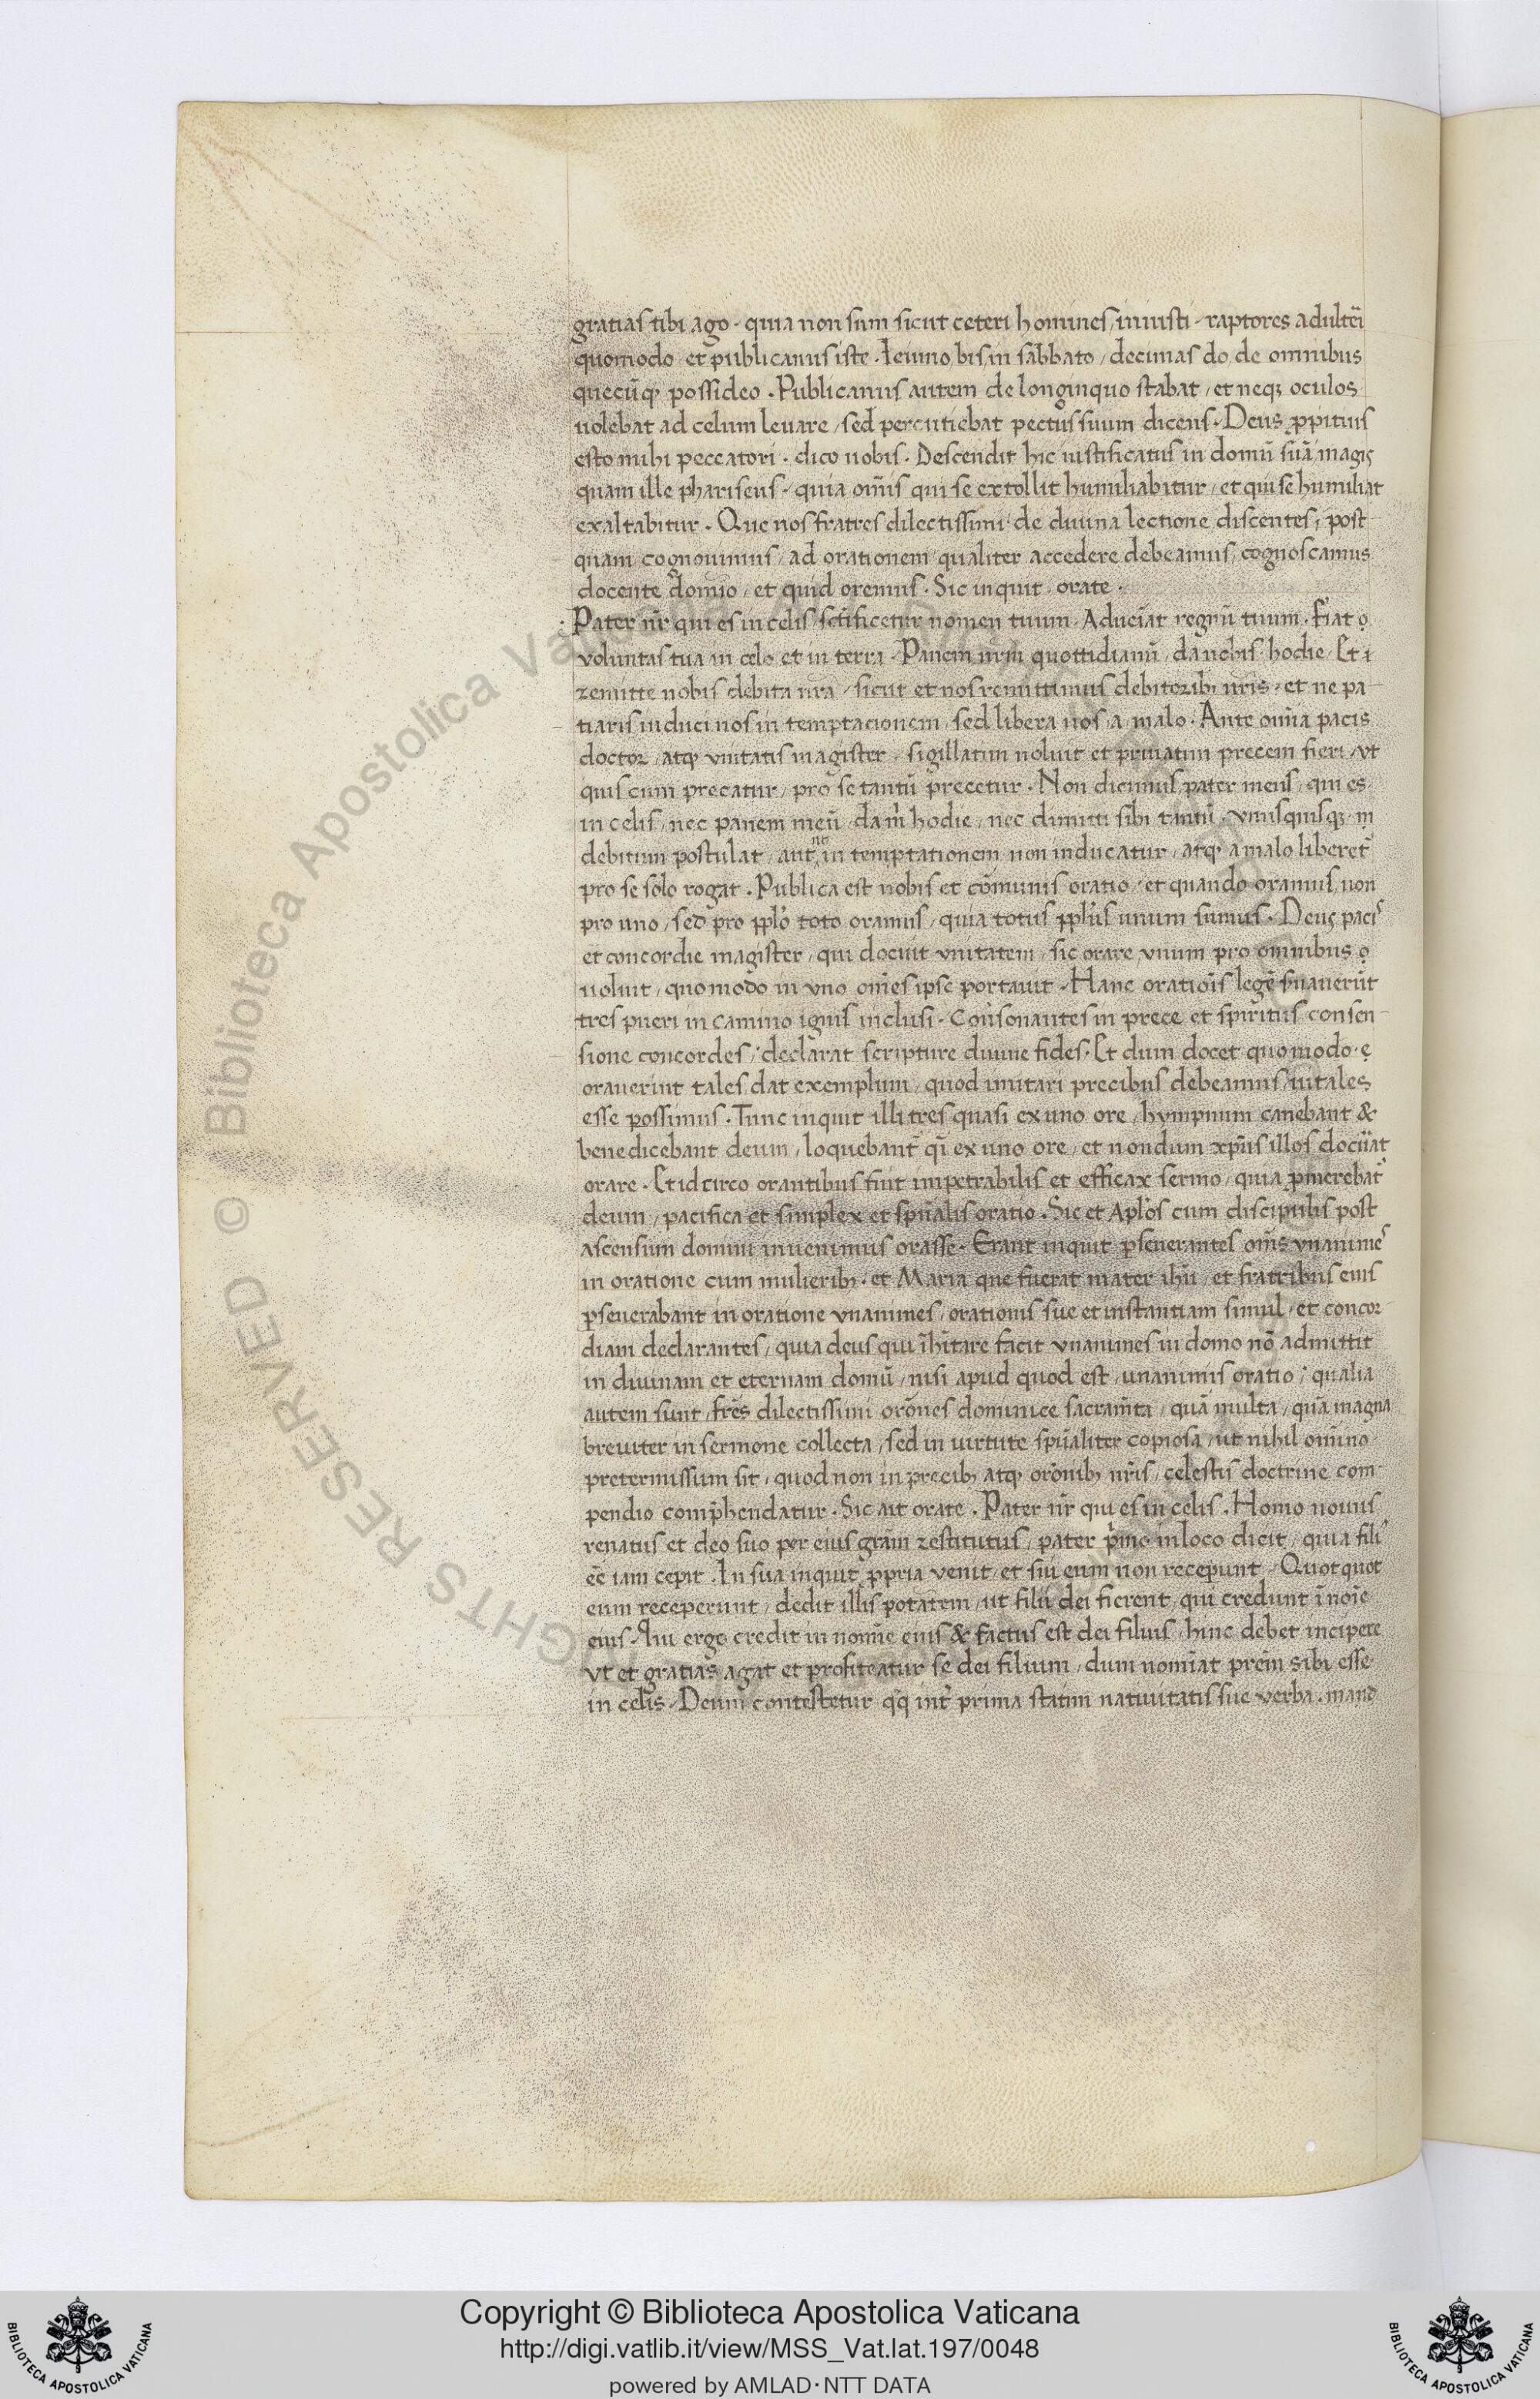 gratias tibi ago · quia non sum sicut ceteri homines / iniusti · raptores adulteri
quomodo et publicanus iste · Ieiuno bis in sabbato / decimas do de omnibus
quecūq; possideo · Publicanus autem de longinquo stabat / et neq; oculos
uolebat ad celum leuare / sed percutiebat pectus suum dicens · Deus ꝓpitius
esto mihi peccatori · dico uobis · Descendit hic iustificatus in domū suā magis
quam ille phariseus · quia om̄is qui se extollit humiliabitur / et qui se humiliat
exaltabitur · Que nos fratres dilectissimi de diuina lectione discentes / post
quam cognouimus / ad orationem qualiter accedere debeamus / cognoscamus
docente domīo / et quid oremus · Sic inquit orate ·
Pater nr̄ qui es in celis / sc̄tificetur nomen tuum · Adueīat regnū tuum · Fiat
voluntas tua in celo et in terra · Panem nrm̄ quottidianū / da nobis hodie / Et
remitte nobis debita nrā / sicut et nos remittimus debitorib; nrīs · et ne pa
tiaris induci nos in temptacionem / sed libera nos / a malo · Ante om̄ia pacis
doctor / atq; vnitatis magister / sigillatim noluit et priuatim precem fieri / vt
quis cum precatur / pro se tantū precetur · Non dicimus / pater meus / qui es
in celis / nec panem meū / da m̄ hodie / nec dimitti sibi tantū / vnusquisq;
debitum postulat / aut ne in temptationem non inducatur / atq; a malo liberet̄
pro se solo rogat · Publica est nobis et cōmunis oratio / et quando oramus / non
pro uno / sed pro pplo toto oramus / quia totus pplus unum sumus · Deus pacis
et concordie magister / qui docuit vnitatem / sic orare vnum pro omnibus
uoluit / quomodo in vno om̄es ipse portauit · Hanc oratiōis legē seruauerūt
tres pueri in camino ignis inclusi · Consonantes in prece et spiritus consen
sione concordes / declarat scripture diuine fides · Et dum docet quomodo
orauerint tales / dat exemplum / quod imitari precibus debeamus / ut tales
esse possimus · Tunc inquit illi tres quasi ex uno ore / hympnum canebant &
benedicebant deum / loquebant̄ qī ex uno ore / et nondum xp̄us illos docuāt
orare · Et idcirco orantibus fuit impetrabilis et efficax sermo / quia ꝓmerebat̄
deum / pacifica et simplex et spūalis oratio · Sic et Aplo̅s cum discipulis post
ascensum domini inuenimus orasse · Erant inquit ꝑseuerantes om̄s vnanimes
in oratione cum mulierib; · et Maria que fuerat mater ihū / et fratribus eius
ꝑseuerabant in oratione vnanimes / orationis sue et instantiam simul / et concor
diam declarantes / quia deus qui īhītare facit vnanimes in domo nō admittit
in diuinam et eternam domū / nisi apud quod est / unanimis oratio / qualia
autem sunt / frēs dilectissimi orōnes dominice sacram̄ta / quā multa / quā magna
breuiter in sermone collecta / sed in uirtute spūaliter copiosa / ut nihil om̄ino
pretermissum sit / quod non in precib; atq; orōnib; nrīs / celestis doctrine com
pendio comp̄hendatur · Sic ait orate · Pater nr̄ qui es in celis · Homo nouus
renatus et deo suo per eius grām restitutus / pater p̄mo in loco dicit / quia fili
ēē iam cepit · In sua inquit ꝓpria venit / et sui eum non receperunt · Quotquot
eum receperunt / dedit illis potatem / ut filii dei fierent / qui credunt ī noīe
eius · Qui ergo credit in nomīe eius & factus est dei filius / hinc debet incipere
vt et gratias agat et profiteatur se dei filium / dum nomīat pr̄em sibi esse
in celis / Deum contestetur q̄q int̄ prima statim natiuitatis sue verba ·
Copyright © Biblioteca Apostolica Vaticana
http://digi.vatlib.it/view/MSS_Vat.lat.197/0048
powered by AMLAD·NTT DATA